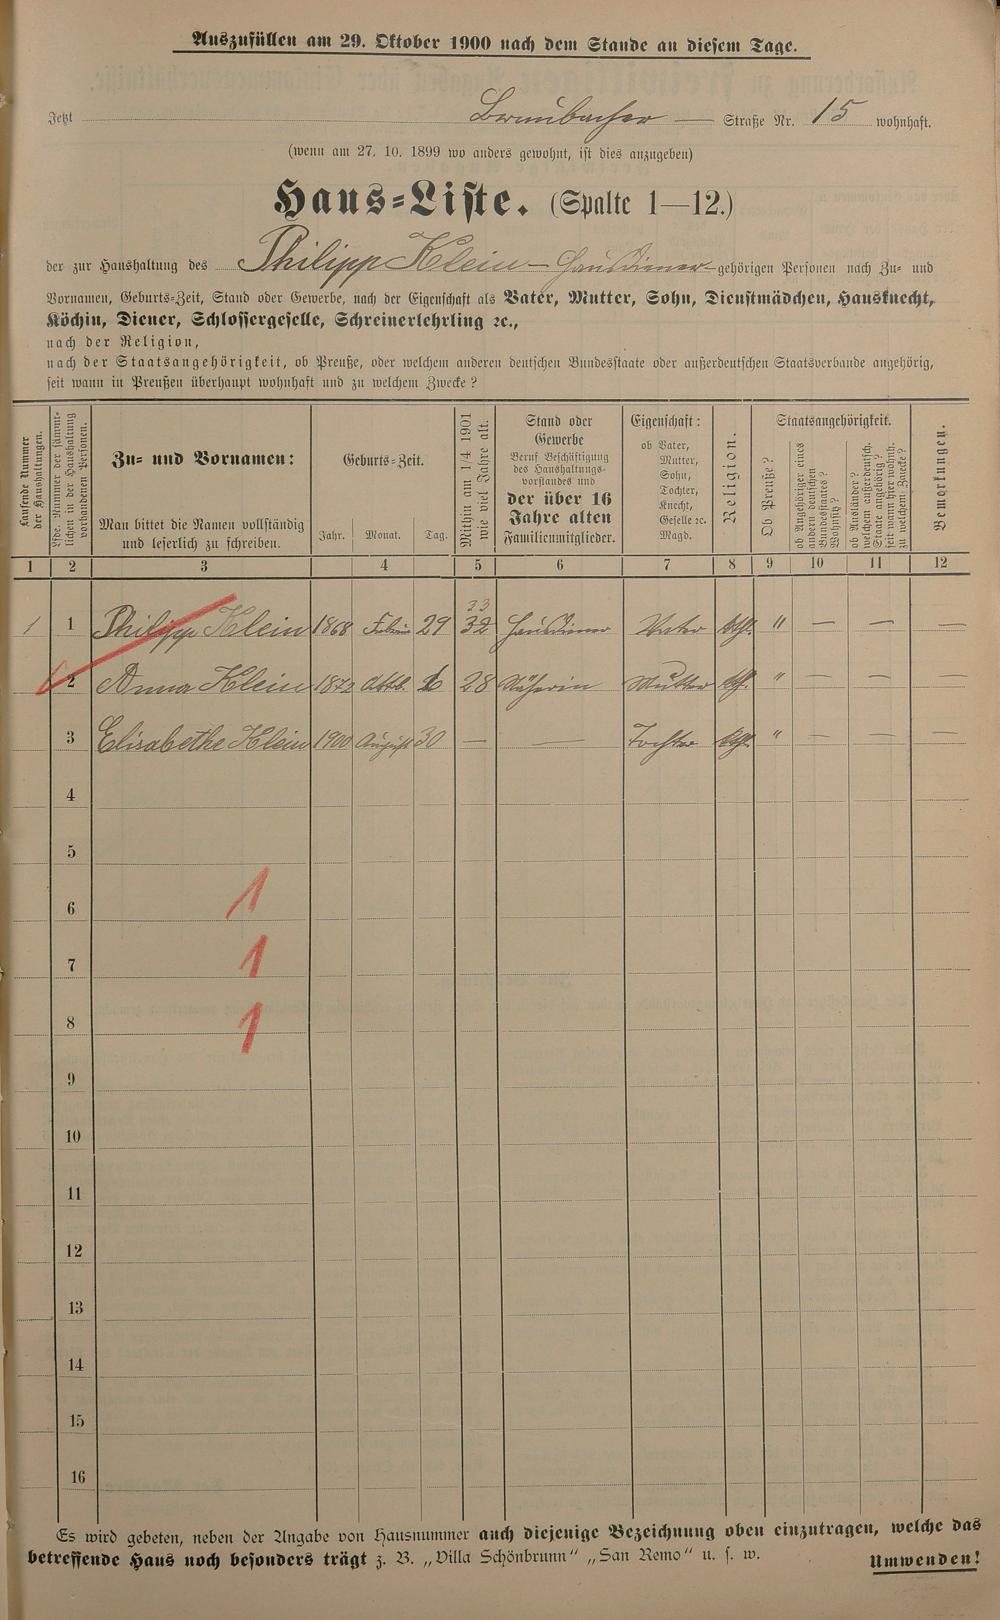 Auszufüllen am 29. Oktober 1900 nach dem Stande an diesem Tage.
Jetzt Straße Nr. 15 wohnhaft.
(wenn am 27. 10. 1899 wo anders gewohnt, ist dies anzugeben)
Haus-Liste. (Spalte 1—12.)
der zur Haushaltung des Philipp Klein — Hausdiener — gehörigen Personen nach Zu- und
Vornamen, Geburts-Zeit, Stand oder Gewerbe, nach der Eigenschaft als Vater, Mutter, Sohn, Dienstmädchen, Hausknecht,
Köchin, Diener, Schlossergeselle, Schreinerlehrling ꝛc.,
nach der Religion,
nach der Staatsangehörigkeit, ob Preuße, oder welchem anderen deutschen Bundesstaate oder außerdeutschen Staatsverbande angehörig,
seit wann in Preußen überhaupt wohnhaft und zu welchem Zwecke?
Laufende Nummer der Haushaltungen.
Lfde. Nummer der sämmtlichen in der Haushaltung vorhandenen Personen.
Zu- und Vornamen:
Man bittet die Namen vollständig
und leserlich zu schreiben.
Geburts-Zeit.
Jahr. Monat. Tag.
Mithin am 1/4 1901 wie viel Jahre alt.
Stand oder
Gewerbe
Beruf Beschäftigung
des Haushaltungs-
vorstandes und
der über 16
Jahre alten
Familienmitglieder.
Eigenschaft:
ob Vater,
Mutter,
Sohn,
Tochter,
Knecht,
Geselle ꝛc.
Magd.
Religion.
Staatsangehörigkeit.
Ob Preuße?
ob Angehöriger eines andern deutschen Bundesstaates? Wohnsitz?
ob Ausländer? welchem außerdeutsch. Staate angehörig? seit wann hier wohnh. zu welchem Zwecke?
Bemerkungen.
1 2 3 4 5 6 7 8 9 10 11 12
33
1 1 Philipp Klein 1868 29 32 Hausdiener Vater kth. " — — —
2 Anna Klein 1872 Oktb. 28 Näherin Mutter kth. " — — —
3 Elisabethe Klein 1900 August 30 — — Tochter kth. " — — —
4
5
6 1
7 1
8 1
9
10
11
12
13
14
15
16
Es wird gebeten, neben der Angabe von Hausnummer auch diejenige Bezeichnung oben einzutragen, welche das
betreffende Haus noch besonders trägt z. B. „Villa Schönbrunn" „San Remo" u. s. w.
Umwenden!